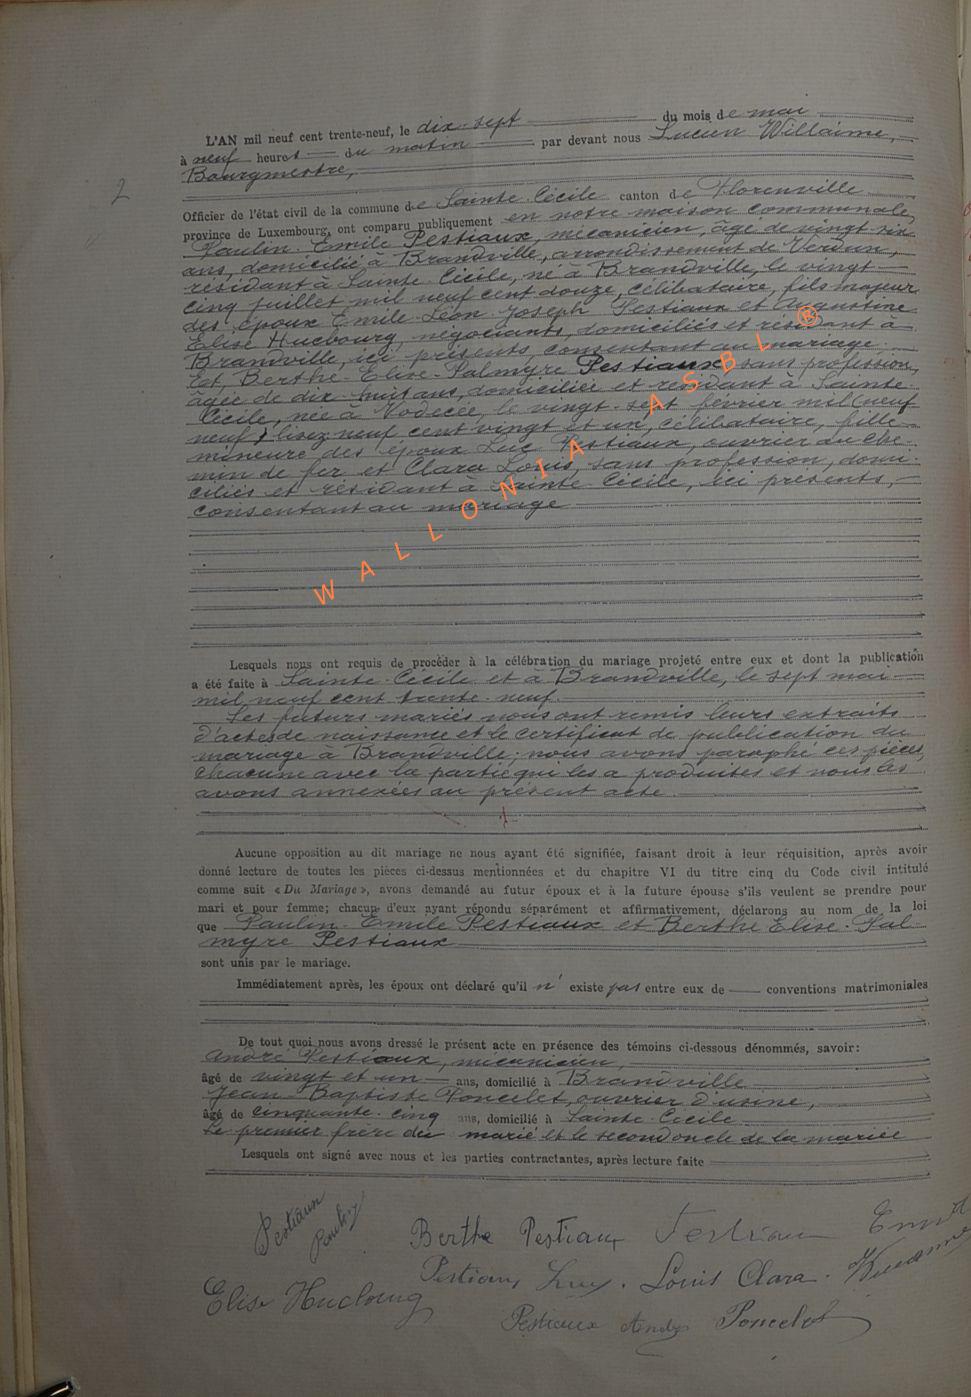 L'AN mil neuf cent trente-neuf, le dix-sept du mois de mai
à neuf heures du matin par devant nous Lucien Willaime,
Bourgmestre,
2
Officier de l'état civil de la commune de Sainte-Cécile canton de Florenville
province de Luxembourg, ont comparu publiquement en notre maison communale,
Paulin-Emile Pestiaux, mécanicien, âgé de vingt-six
ans, domicilié à Brandville, arrondissement de Verdun,
résidant à Sainte-Cécile, né à Brandville, le vingt-
cinq juillet mil neuf cent douze, célibataire, fils majeur
des époux Emile-Léon-Joseph Pestiaux et Augustine
Elise Hucbourg, négociants, domiciliés et résidant à
Brandville, ici présents, consentant au mariage.
Et, Berthe-Elise-Palmyre Pestiaux sans profession,
âgée de dix-huit ans, domiciliée et résidant à Sainte-
Cécile, née à Vodecée, le vingt-sept février mil (neuf
neuf) lisez neuf cent vingt et un, célibataire, fille
mineure des époux Luc Pestiaux, ouvrier au che-
min de fer et Clara Louis, sans profession, domi-
ciliés et résidant à Sainte-Cécile, ici présents,
consentant au mariage
WALLONIA ASBL ®
Lesquels nous ont requis de procéder à la célébration du mariage projeté entre eux et dont la publication
a été faite à Sainte-Cécile et à Brandville, le sept mai
mil neuf cent trente-neuf.
Les futurs mariés nous ont remis leurs extraits
d'actes de naissance et le certificat de publication du
mariage à Brandville; nous avons paraphé ces pièces,
chacune avec la partie qui les a produites et nous les
avons annexées au présent acte.
Aucune opposition au dit mariage ne nous ayant été signifiée, faisant droit à leur réquisition, après avoir
donné lecture de toutes les pièces ci-dessus mentionnées et du chapitre VI du titre cinq du Code civil intitulé
comme suit « Du Mariage », avons demandé au futur époux et à la future épouse s'ils veulent se prendre pour
mari et pour femme; chacun d'eux ayant répondu séparément et affirmativement, déclarons au nom de la loi
que Paulin-Emile Pestiaux et Berthe Elise-Pal-
myre Pestiaux
sont unis par le mariage.
Immédiatement après, les époux ont déclaré qu'il n' existe pas entre eux de conventions matrimoniales
De tout quoi nous avons dressé le présent acte en présence des témoins ci-dessous dénommés, savoir:
André Pestiaux, mécanicien,
âgé de vingt et un ans, domicilié à Brandville
Jean-Baptiste Poncelet, ouvrier d'usine,
âgé de cinquante-cinq ans, domicilié à Sainte-Cécile
Le premier frère du marié et le second oncle de la mariée
Lesquels ont signé avec nous et les parties contractantes, après lecture faite
Pestiaux Paulin Berthe Pestiaux Pestiaux Emile
Elise Hucbourg Pestiaux Luc. Louis Clara.
Pestiaux André Poncelet